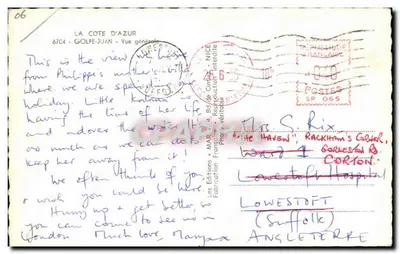 06
LA COTE D'AZUR
6704 - GOLFE-JUAN - Vue générale
This is the view we have
from Philippe's mother's
where we are spending our
holiday. Little
having the time of her life
and adores the
so much we can do to
keep her away from it!
We often think of you
& wish you could be here
Hurry up & get better so
you can come to see us in
London Much love,
26.6
POSTES
SP 065
Mrs S. Rix
THE HAVEN, RACKHAM'S CORNER,
Ward 1
GORLESTON RD
CORTON.
Lowestoft Hospital
LOWESTOFT
(Suffolk)
ANGLETERRE